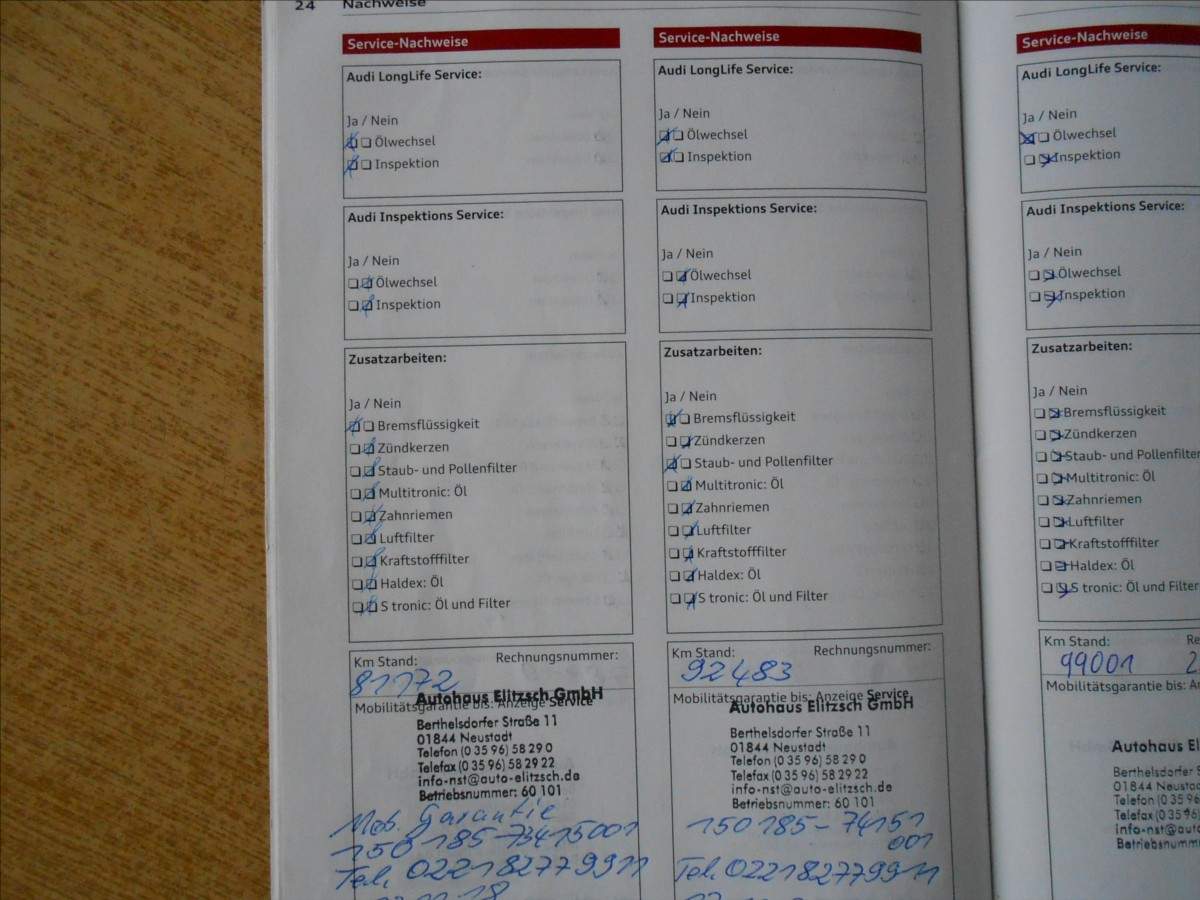 24 Nachweise
Service-Nachweise
Audi LongLife Service:
Ja / Nein
Ölwechsel
Inspektion
Audi Inspektions Service:
Ja / Nein
Ölwechsel
Inspektion
Zusatzarbeiten:
Ja / Nein
Bremsflüssigkeit
Zündkerzen
Staub- und Pollenfilter
Multitronic: Öl
Zahnriemen
Luftfilter
Kraftstofffilter
Haldex: Öl
S tronic: Öl und Filter
Km Stand: Rechnungsnummer:
81172
Mobilitätsgarantie bis: Anzeige Service
Autohaus Elitzsch GmbH
Berthelsdorfer Straße 11
01844 Neustadt
Telefon (0 35 96) 58 29 0
Telefax (0 35 96) 58 29 22
info-nst@auto-elitzsch.de
Betriebsnummer: 60 101
Mob. Garantie
150185-73415001
Tel. 022182779911
Service-Nachweise
Audi LongLife Service:
Ja / Nein
Ölwechsel
Inspektion
Audi Inspektions Service:
Ja / Nein
Ölwechsel
Inspektion
Zusatzarbeiten:
Ja / Nein
Bremsflüssigkeit
Zündkerzen
Staub- und Pollenfilter
Multitronic: Öl
Zahnriemen
Luftfilter
Kraftstofffilter
Haldex: Öl
S tronic: Öl und Filter
Km Stand: Rechnungsnummer:
92483
Mobilitätsgarantie bis: Anzeige Service
Autohaus Elitzsch GmbH
Berthelsdorfer Straße 11
01844 Neustadt
Telefon (0 35 96) 58 29 0
Telefax (0 35 96) 58 29 22
info-nst@auto-elitzsch.de
Betriebsnummer: 60 101
150185-74151
001
Tel. 022182779911
Service-Nachweise
Audi LongLife Service:
Ja / Nein
Ölwechsel
Inspektion
Audi Inspektions Service:
Ja / Nein
Ölwechsel
Inspektion
Zusatzarbeiten:
Ja / Nein
Bremsflüssigkeit
Zündkerzen
Staub- und Pollenfilter
Multitronic: Öl
Zahnriemen
Luftfilter
Kraftstofffilter
Haldex: Öl
S tronic: Öl und Filter
Km Stand: Re
99001 2
Mobilitätsgarantie bis: An
Autohaus El
Berthelsdorfer S
01844 Neustad
Telefon (0 35 96
Telefax (0 35 96
info-nst@auto-
Betriebsnumm